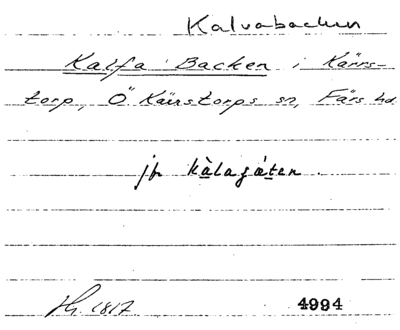 Kalvabacken
Kalfa Backen i Kärrs-
torp, Ö. Kärrstorps sn, Färs hd
jfr kàlagáten.
Hg. 1817 4994